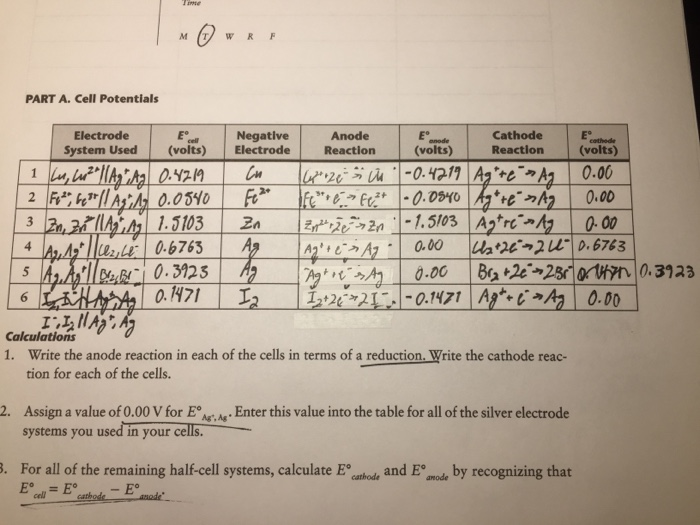 Time
M T W R F
PART A. Cell Potentials
Electrode System Used | E°cell (volts) | Negative Electrode | Anode Reaction | E°anode (volts) | Cathode Reaction | E°cathode (volts)
1 Cu, Cu²⁺||Ag⁺, Ag 0.4219 Cu Cu²⁺+2e⁻→Cu -0.4219 Ag⁺+e⁻→Ag 0.00
2 Fe²⁺, Fe³⁺||Ag⁺, Ag 0.0540 Fe²⁺ Fe³⁺+e⁻→Fe²⁺ -0.0540 Ag⁺+e⁻→Ag 0.00
3 Zn, Zn²⁺||Ag⁺, Ag 1.5103 Zn Zn²⁺+2e⁻→Zn -1.5103 Ag⁺+e⁻→Ag 0.00
4 Ag, Ag⁺||Cl₂, Cl⁻ 0.6763 Ag Ag⁺+e⁻→Ag 0.00 Cl₂+2e⁻→2Cl⁻ 0.6763
5 Ag, Ag⁺||Br₂, Br⁻ 0.3923 Ag Ag⁺+e⁻→Ag 0.00 Br₂+2e⁻→2Br⁻ 0.3923
6 0.1471 I₂ I₂+2e⁻→2I⁻ -0.1471 Ag⁺+e⁻→Ag 0.00
I⁻, I₂||Ag⁺, Ag
Calculations
1. Write the anode reaction in each of the cells in terms of a reduction. Write the cathode reac-
tion for each of the cells.
2. Assign a value of 0.00 V for E°Ag⁺, Ag. Enter this value into the table for all of the silver electrode
systems you used in your cells.
3. For all of the remaining half-cell systems, calculate E°cathode and E°anode by recognizing that
E°cell = E°cathode – E°anode.